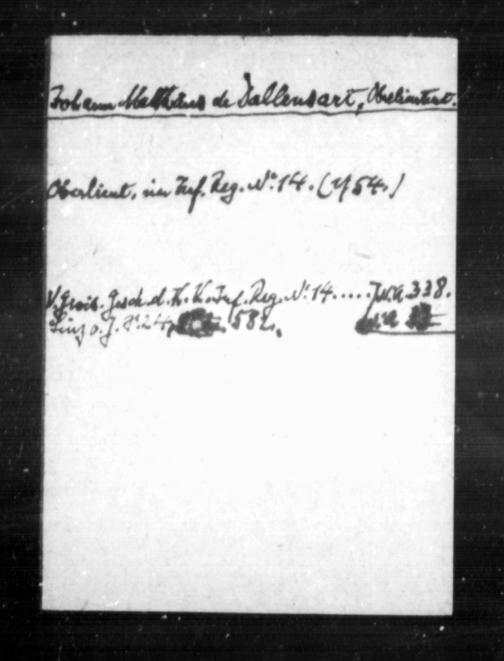 Johann Matthäus de Sallensart, Oberlieutent.
Oberlieut. im Inf. Reg. No. 14. (1754.)
V. Grois. Gesch. d. K. K. Inf. Reg. No. 14..... J.N.A 338.
Linz o. J. 8o. 24, 582.